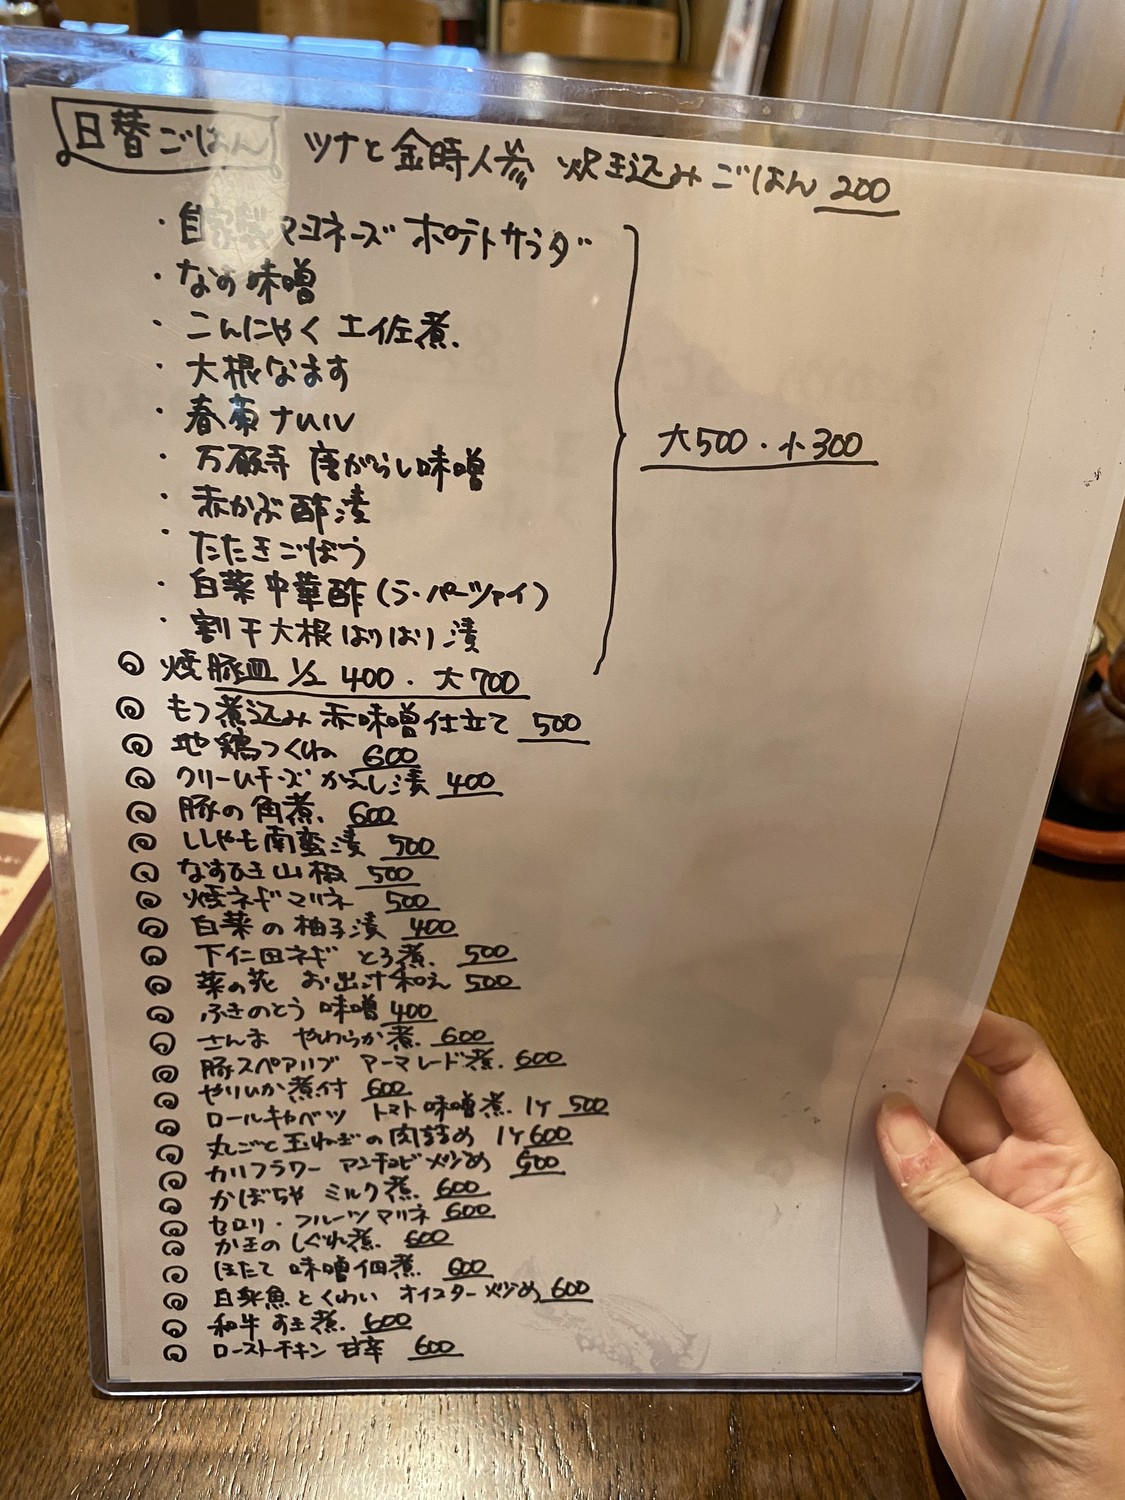 日替ごはん ツナと金時人参 炊き込みごはん 200
・自家製マヨネーズ ポテトサラダ
・なす味噌
・こんにゃく 土佐煮.
・大根なます
・春菊ナムル
・万願寺 唐がらし味噌
・赤かぶ酢漬
・たたきごぼう
・白菜中華酢(ラーパーツァイ)
・割干大根はりはり漬
大500・小300
焼豚皿 1/2 400・大700
もつ煮込み 赤味噌仕立て 500
地鶏つくね 600
クリームチーズ かえし漬 400
豚の角煮. 600
ししゃも南蛮漬 500
なすひき山椒 500
焼ネギマリネ 500
白菜の柚子漬 400
下仁田ネギ とろ煮. 500
菜の花 お出汁和え 500
ふきのとう 味噌 400
さんま やわらか煮. 600
豚スペアリブ マーマレード煮. 600
やりいか煮付 600
ロールキャベツ トマト味噌煮. 1ケ 500
丸ごと玉ねぎの肉詰め 1ケ600
カリフラワー アンチョビ炒め 500
かぼちゃ ミルク煮. 600
セロリ・フルーツマリネ 600
かきのしぐれ煮. 600
ほたて 味噌佃煮. 600
白身魚とくわい オイスター炒め 600
和牛 すき煮. 600
ローストチキン 甘辛 600